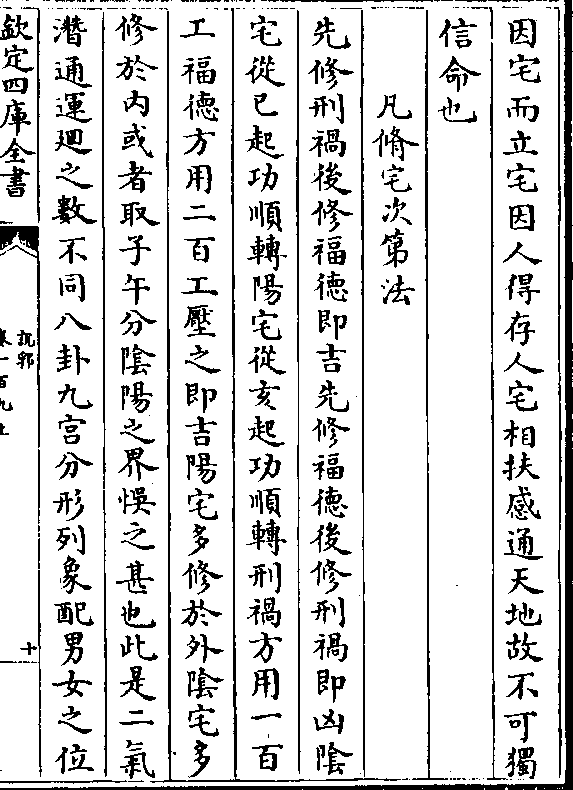 因宅而立宅因人得存人宅相扶感通天地故不可獨
信命也
凡脩宅次第法
先修刑禍後修福德即吉先修福德後修刑禍即凶陰
宅從巳起功順轉陽宅從亥起功順轉刑禍方用一百
工福德方用二百工壓之即吉陽宅多修於外陰宅多
修於内或者取子午分陰陽之界悞之甚也此是二氣
潛通運廻之數不同八卦九宫分形列象配男女之位
欽定四庫全書
說郛
十